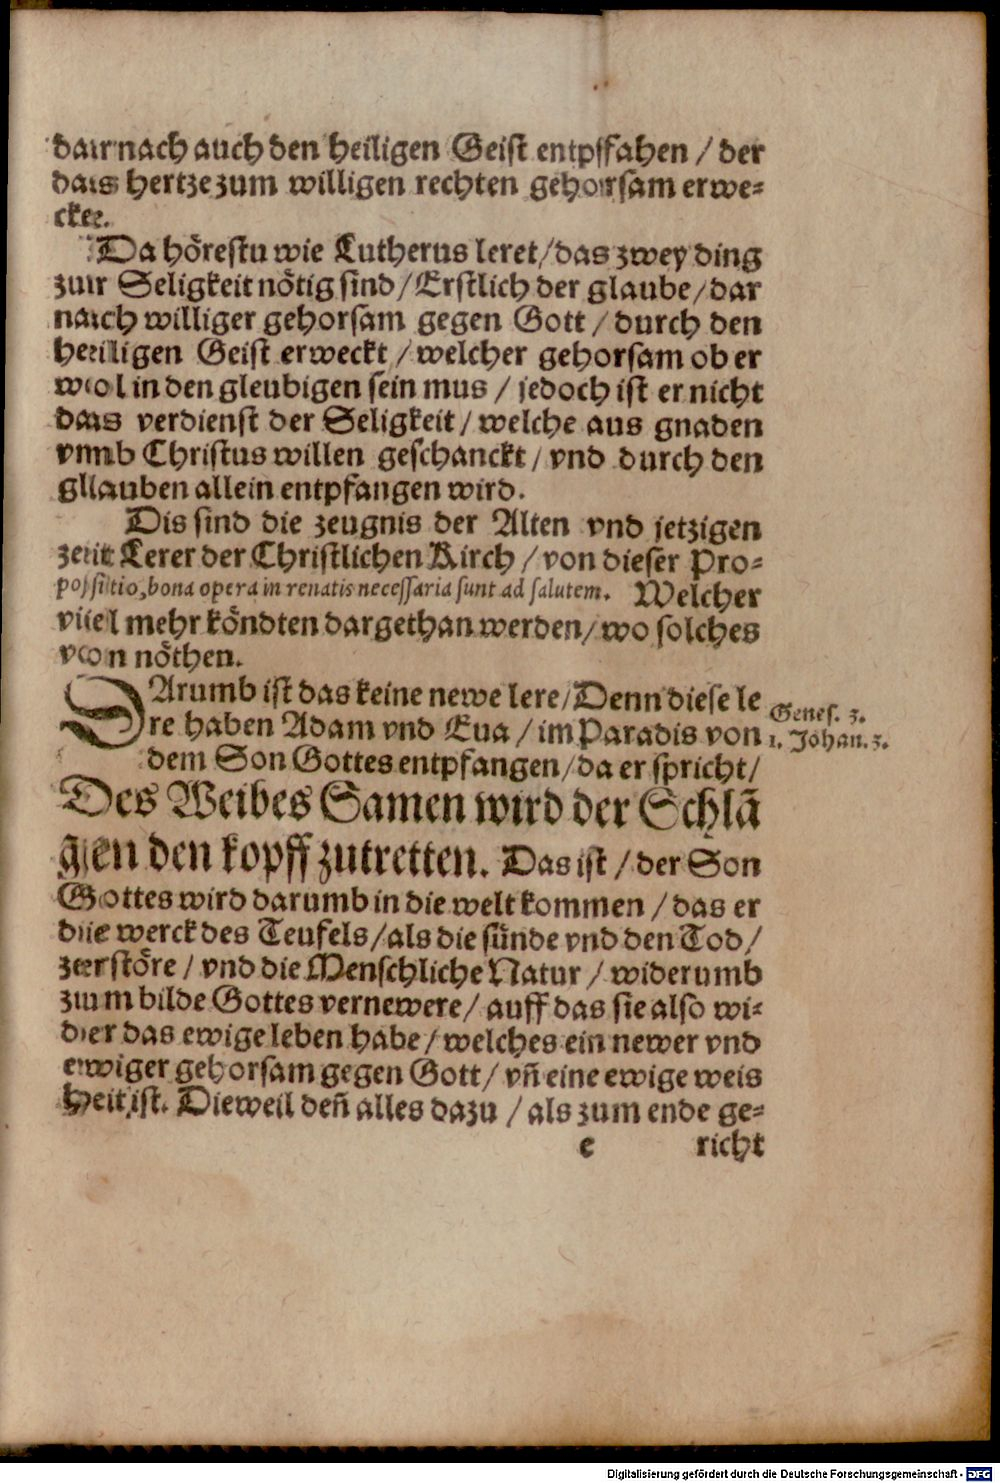 darnach auch den heiligen Geist entpffahen / der
das hertze zum willigen rechten gehorsam erwe-
cket.
Da hörestu wie Lutherus leret/das zwey ding
zur Seligkeit nötig sind/Erstlich der glaube/dar
nach williger gehorsam gegen Gott / durch den
heiligen Geist erweckt / welcher gehorsam ob er
wol in den gleubigen sein mus / jedoch ist er nicht
das verdienst der Seligkeit / welche aus gnaden
vmb Christus willen geschanckt / vnd durch den
glauben allein entpfangen wird.
Dis sind die zeugnis der Alten vnd jetzigen
zeit Lerer der Christlichen Kirch / von dieser Pro-
positio, bona opera in renatis necessaria sunt ad salutem. Welcher
viel mehr köndten dargethan werden/ wo solches
von nöthen.
DArumb ist das keine newe lere/Denn diese le
re haben Adam vnd Eua / im Paradis von
Genes. 3.
1. Johan. 3.
dem Son Gottes entpfangen/da er spricht/
Des Weibes Samen wird der Schlā
gen den kopff zutretten. Das ist / der Son
Gottes wird darumb in die welt kommen / das er
die werck des Teufels/als die sünde vnd den Tod/
zerstöre / vnd die Menschliche Natur / widerumb
zum bilde Gottes vernewere/ auff das sie also wi-
der das ewige leben habe / welches ein newer vnd
ewiger gehorsam gegen Gott/ vn̄ eine ewige weis
heit ist. Dieweil den̄ alles dazu / als zum ende ge-
e richt
Digitalisierung gefördert durch die Deutsche Forschungsgemeinschaft - DFG